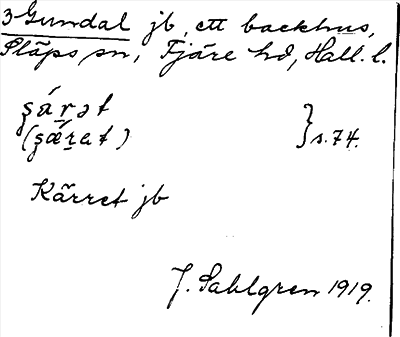 3 Gundal jb, ett backhus,
Släps sn, Fjäre hd, Hall. l.
ʂárət
(ʂǽrət) } s. 74.
Kärret jb
J. Sahlgren 1919.